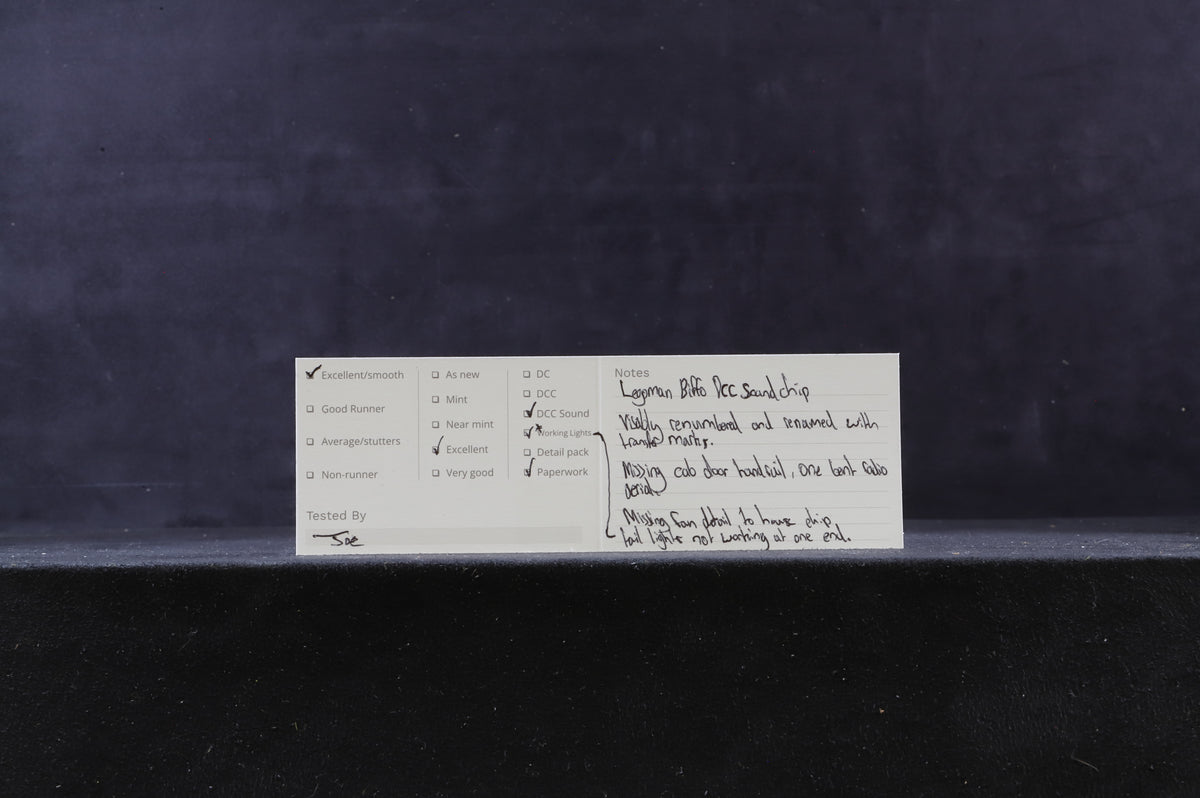 ✓ Excellent/smooth
☐ Good Runner
☐ Average/stutters
☐ Non-runner
☐ As new
☐ Mint
☐ Near mint
✓ Excellent
☐ Very good
☐ DC
☐ DCC
✓ DCC Sound
✓* Working Lights
☐ Detail pack
✓ Paperwork
Tested By
Joe
Notes
Legoman Biffo DCC Sound chip
Visably renumbered and renamed with
transfer marks.
Missing cab door handrail, one bent radio
aerial
Missing fan detail to house chip
tail lights not working at one end.